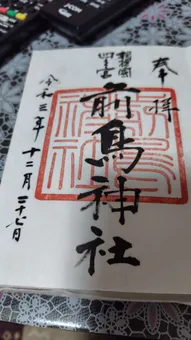 奉拝
相模國
四之宮
前鳥神社
令和三年十二月二十七日